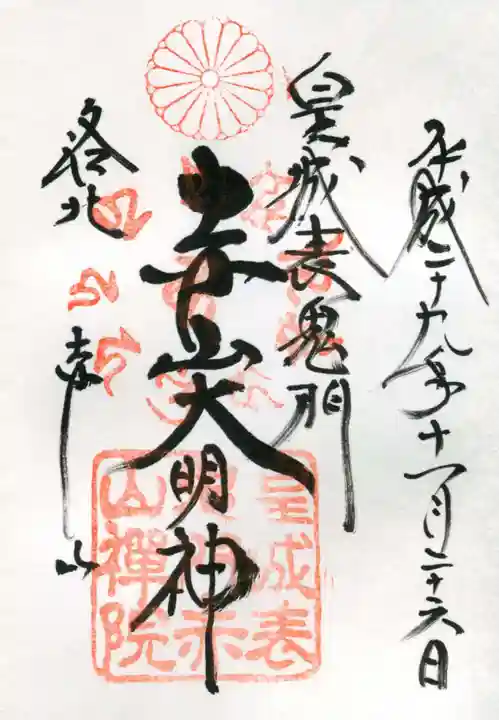 平成二十九年十一月二十六日
皇城表鬼門
赤山大明神
洛北 赤山
皇城表
鬼門赤
山禅院